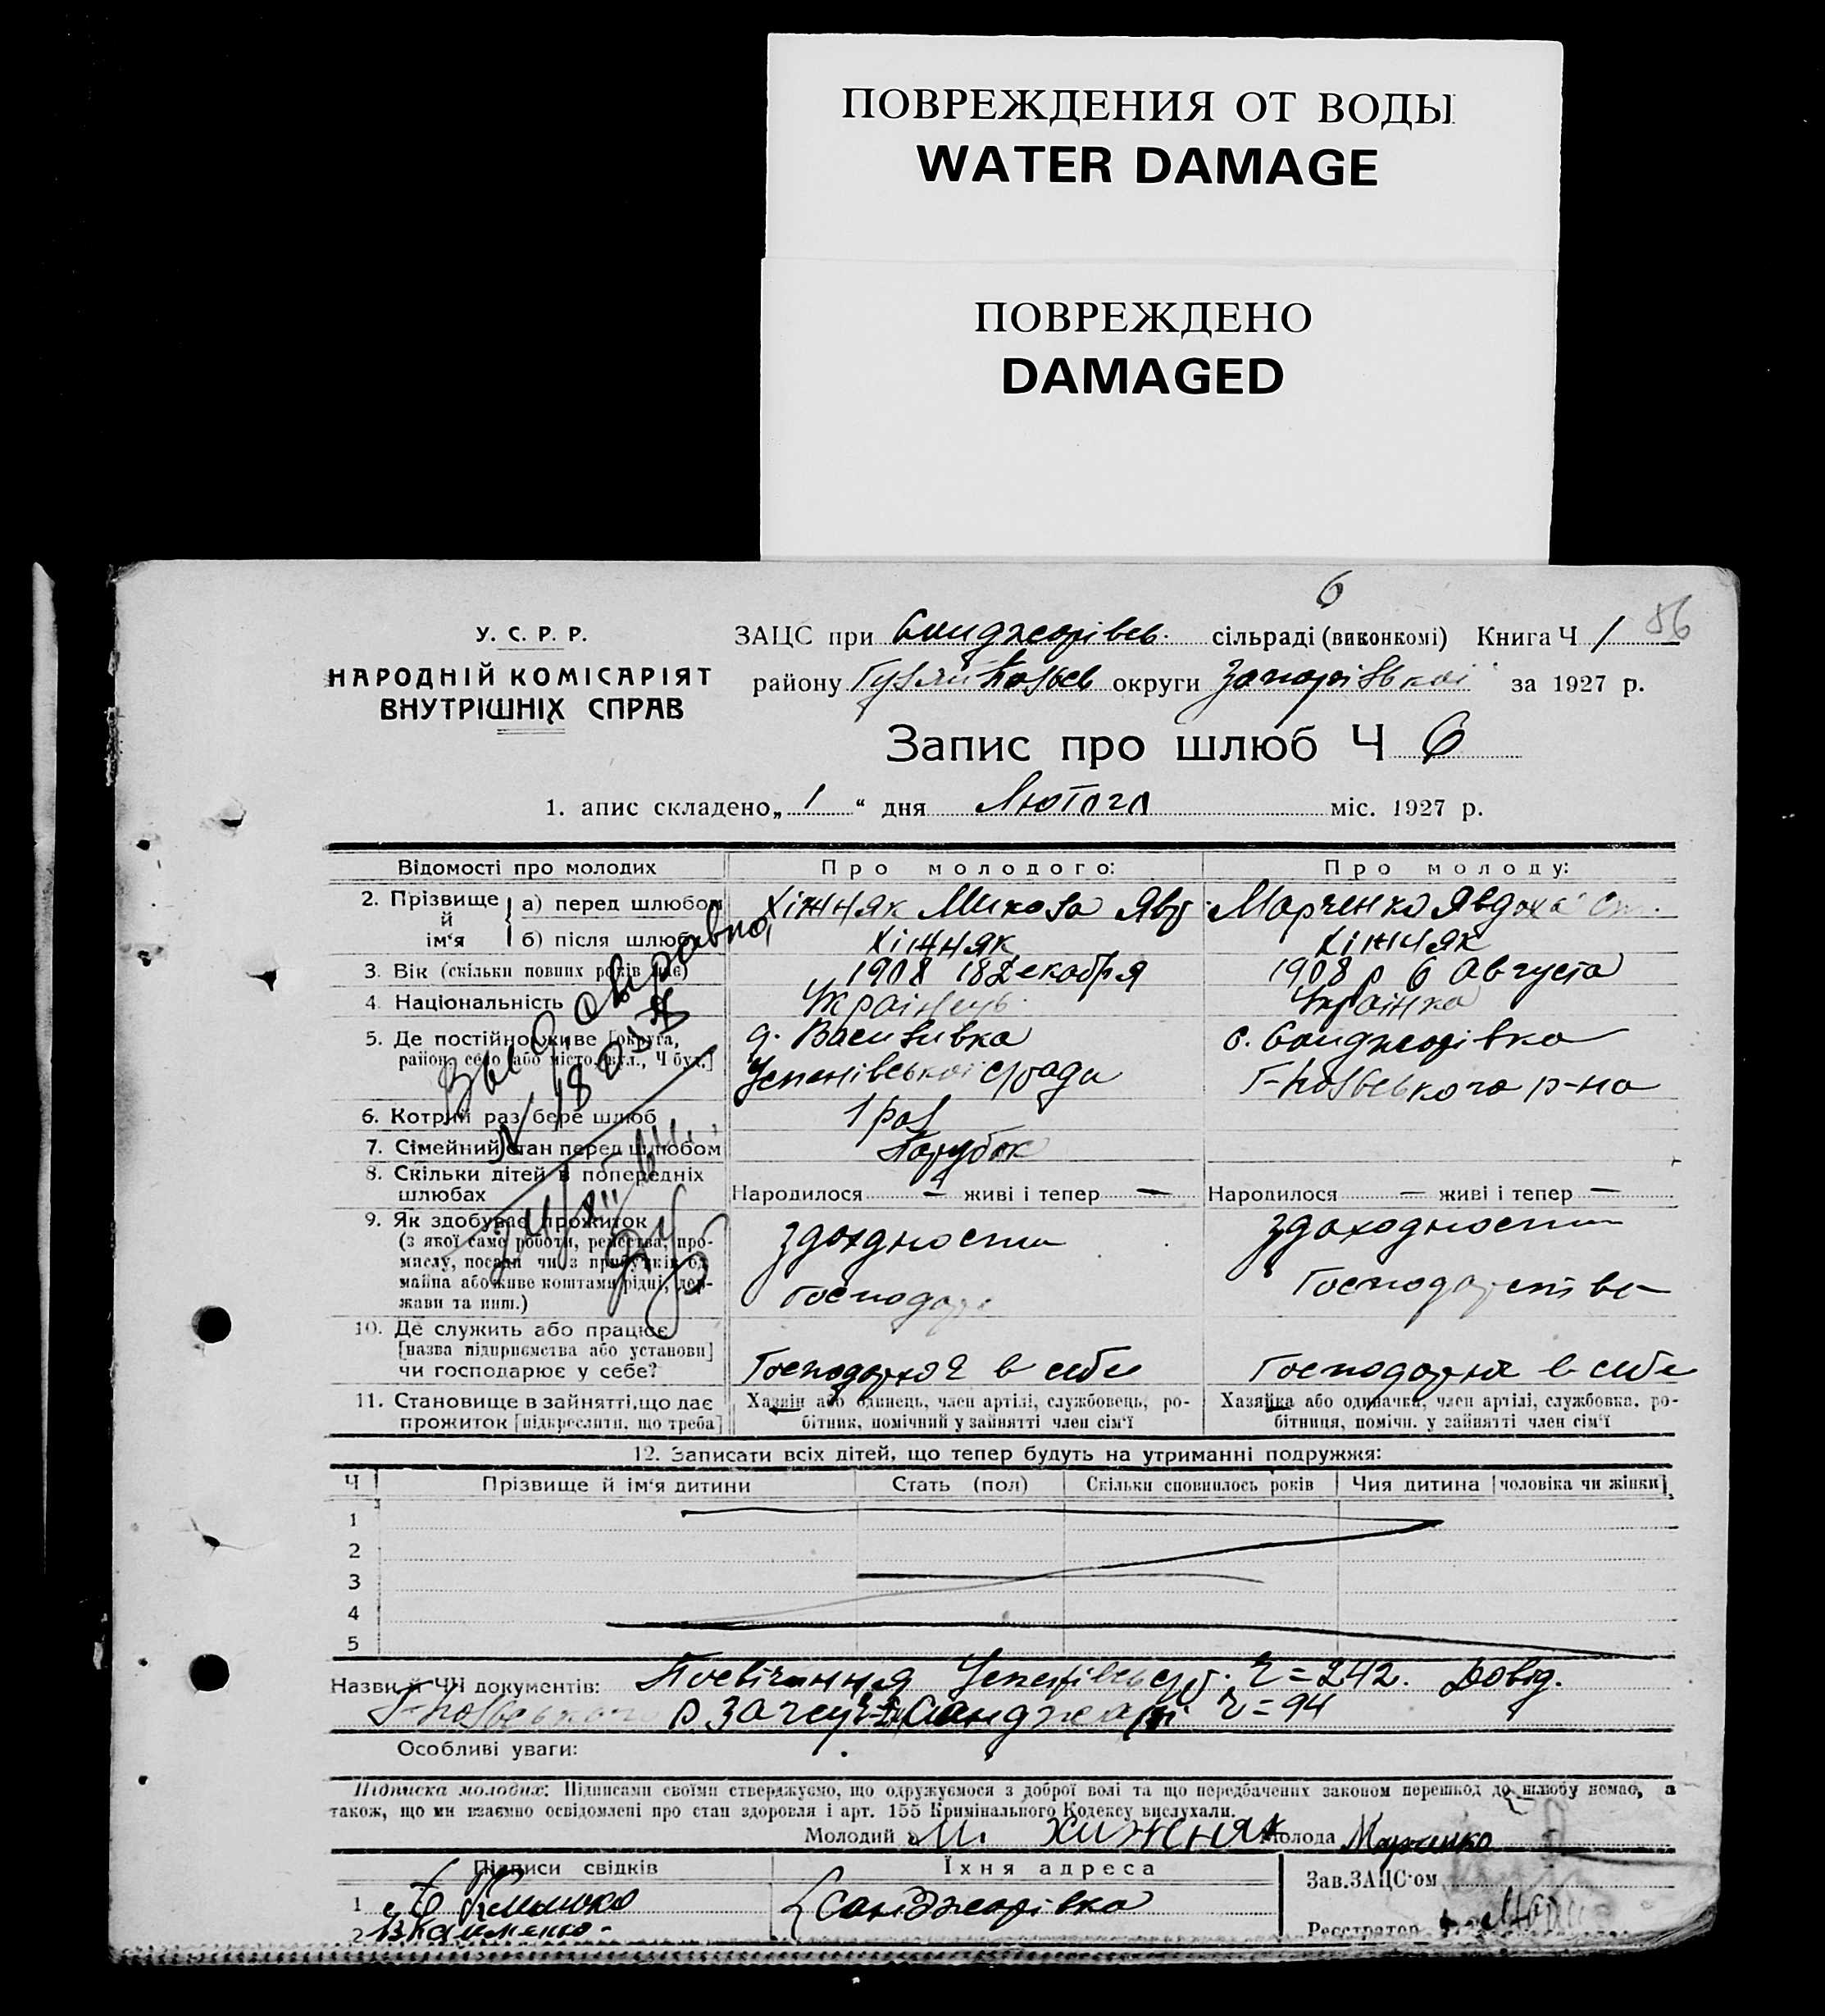 ПОВРЕЖДЕНИЯ ОТ ВОДЫ
WATER DAMAGE
ПОВРЕЖДЕНО
DAMAGED
6
У. С. Р. Р.
НАРОДНІЙ КОМІСАРІЯТ
ВНУТРІШНІХ СПРАВ
ЗАЦС при Санджарівсь. сільраді (виконкомі) Книга Ч 1 86
району округи Запорізької за 1927 р.
Запис про шлюб Ч 6
1. апис складено „ 1 “ дня Лютого міс. 1927 р.
Відомості про молодих Про молодого: Про молоду:
2. Прізвище й ім'я а) перед шлюбом Хіжняк Микола Марченко Явдоха
б) після шлюбу Хіжняк Хіжняк
3. Вік (скільки повних років має) 1908 18 Декабря 1908 р 6 Августа
4. Національність Українець Українка
5. Де постійно живе [округа, район, село або місто, вул., Ч буд.] д. Василівка с. Санджарівка
Успенівської с/ради Г-Польського р-на
6. Котрий раз бере шлюб 1 раз
7. Сімейний стан перед шлюбом Парубок
8. Скільки дітей в попередніх шлюбах Народилося — живі і тепер — Народилося — живі і тепер —
9. Як здобуває прожиток
(з якої саме роботи, ремества, про-
мислу, посади чи з прибутків од
майна або живе коштами рідні, дер-
жави та инш.)
здоходности
здоходности
Господар
Господарства
10. Де служить або працює
[назва підприємства або установи]
чи господарює у себе? в себе в себе
11. Становище в зайнятті, що дає
прожиток [підкреслити, що треба]
Хазяін або одинець, член артілі, службовець, ро-
бітник, помічний у зайнятті член сім'ї
Хазяйка або одиначка, член артілі, службовка, ро-
бітниця, помічн. у зайнятті член сім'ї
12. Записати всіх дітей, що тепер будуть на утриманні подружжя:
Ч Прізвище й ім'я дитини Стать (пол) Скільки сповнилось років Чия дитина [чоловіка чи жінки]
1
2
3
4
5
Назви й ЧЧ документів: Посвічання Успенівськ с/р. Ч=242. Довід.
Санджарі Ч=94
Особливі уваги:
Підписка молодих: Підписами своїми стверджуємо, що одружуємося з доброї волі та що передбачених законом перешкод до шлюбу немає, а
також, що ми взаємно освідомлені про стан здоровля і арт. 155 Кримінального Кодексу вислухали.
Молодий М. Хижняк Молода Марченко
Підписи свідків Їхня адреса Зав. ЗАЦС'ом
1 Санджарівка
2
Реєстратор